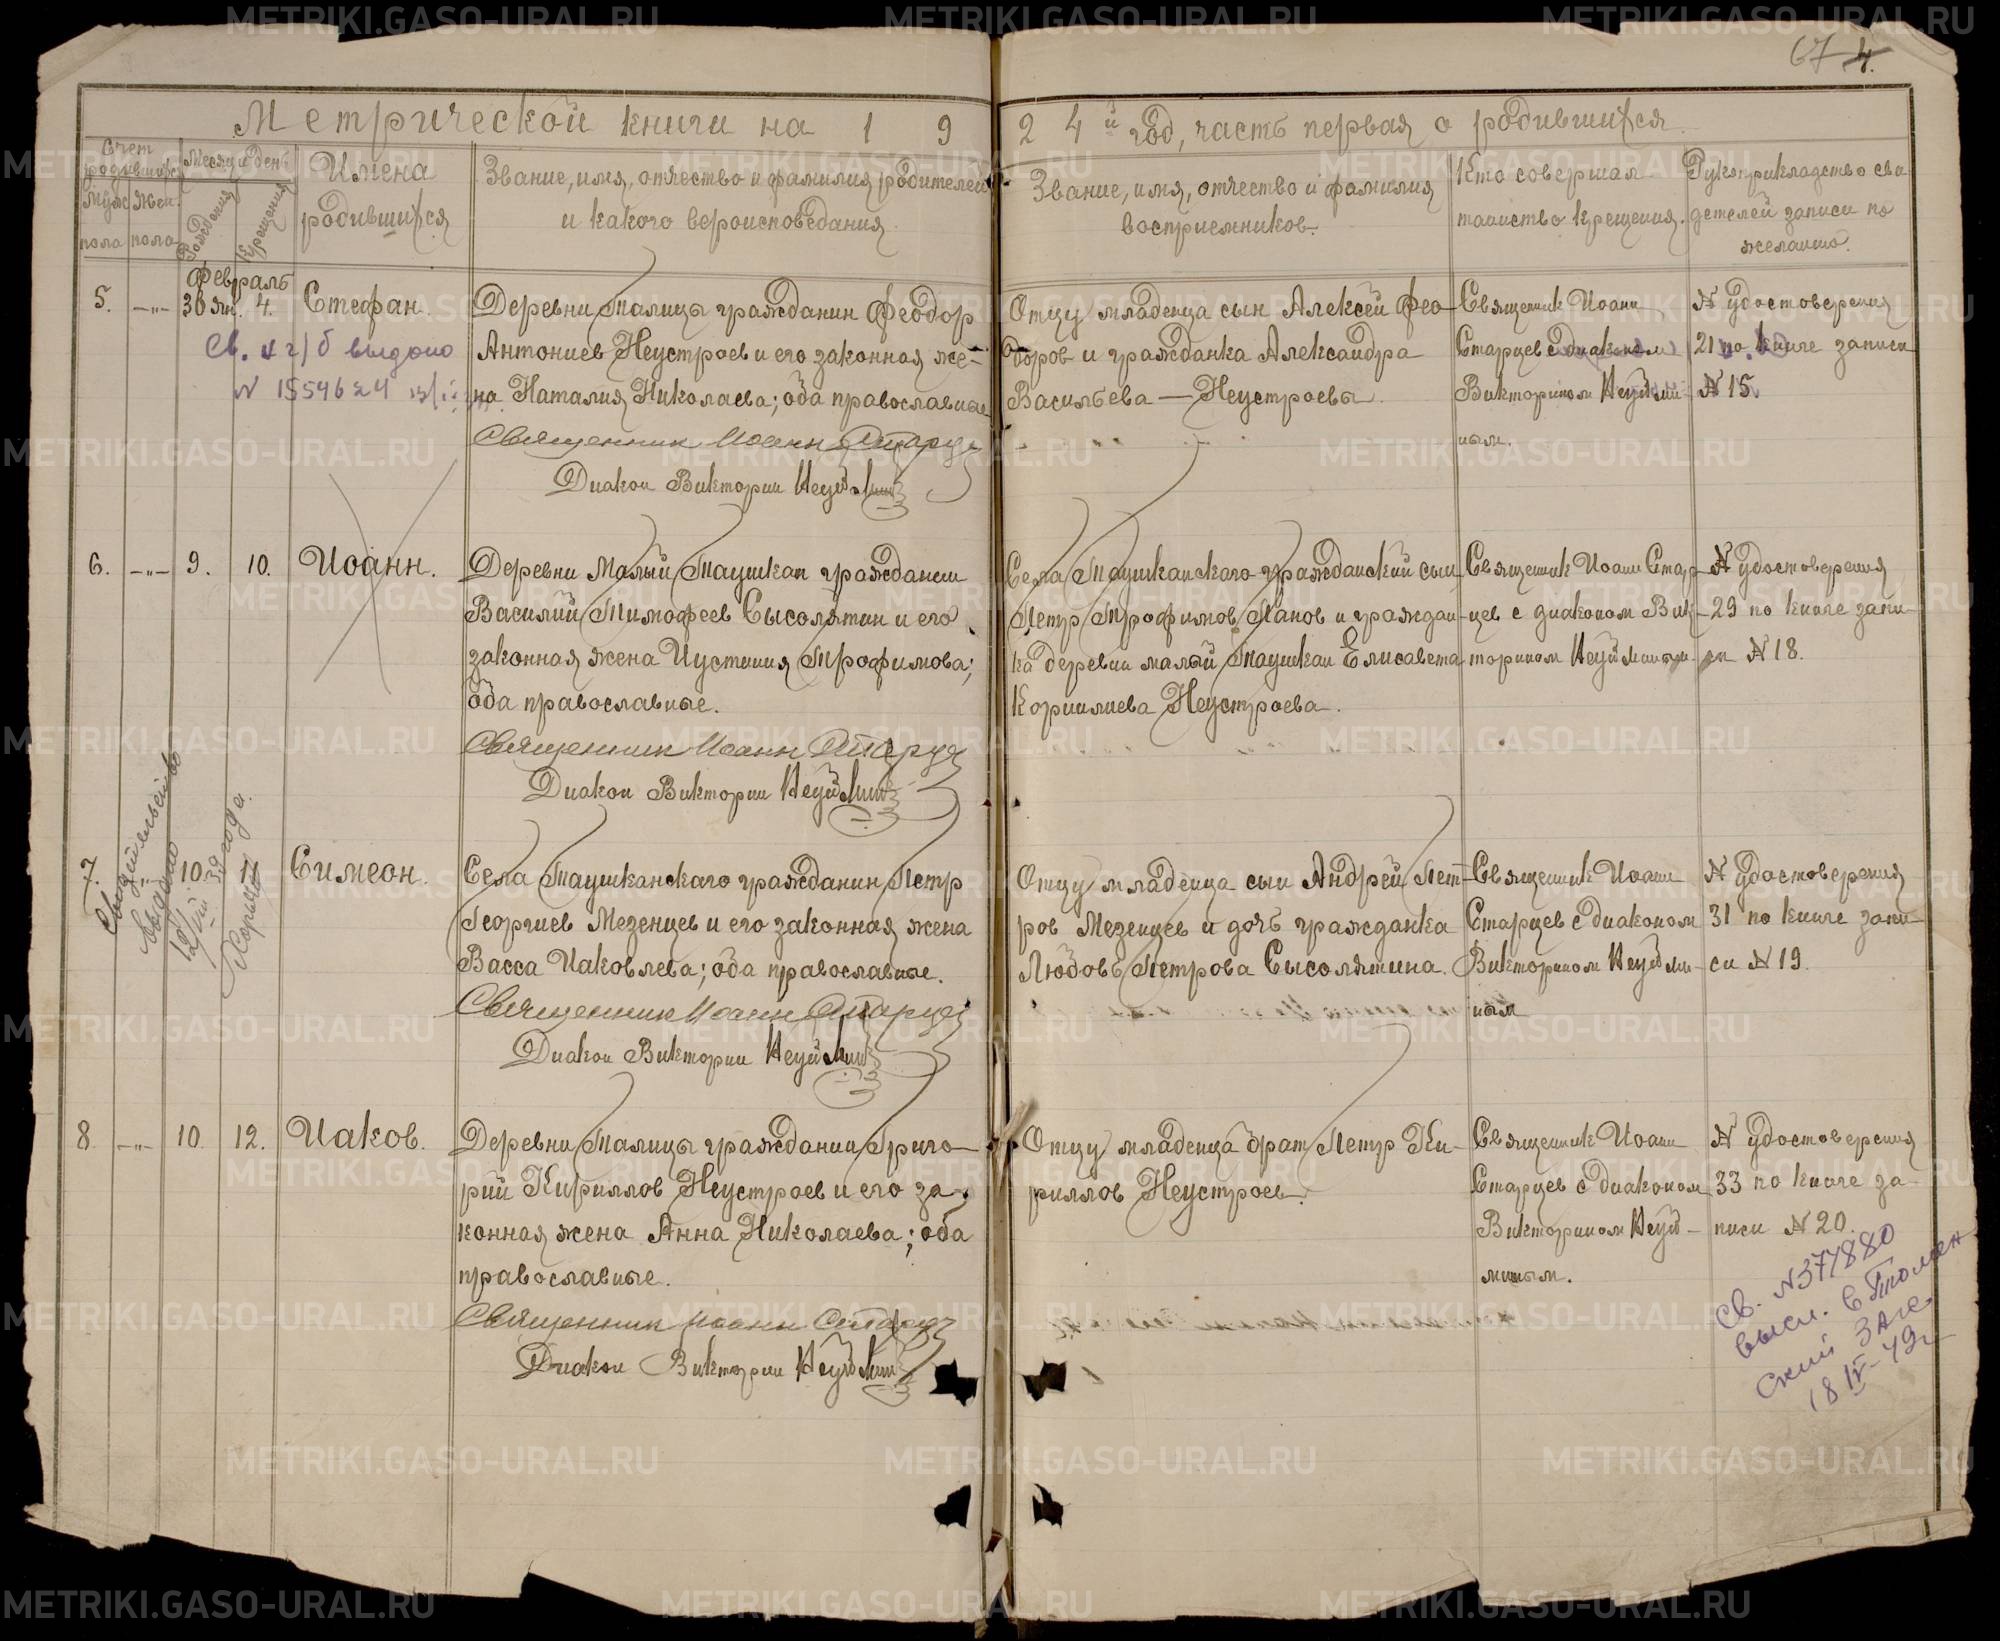 67 4.
Метрической книги на 1924й год, часть первая о родившихся.
Счет родившихся
Муж. пола
Жен. пола
Месяц и день
Рождения
Крещения
Имена
родившихся
Звание, имя, отчество и фамилия родителей
и какого вероисповедания
Звание, имя, отчество и фамилия
восприемников.
Кто совершал
таинство крещения.
Рукоприкладство сви
детелей записи по
желанию.
Февраль
5. —„— 30 ян. 4. Стефан.
Деревни Талицы гражданин Феодор
Антониев Неустроев и его законная же-
на Наталия Николаева; оба православные
Священник Иоанн Старцев
Диакон Викторин Неуймин
Отцу младенца сын Алексей Фео-
доров и гражданка Александра
Васильева — Неустроевы.
Священник Иоанн
Старцев с диаконом
Викторином Неуйми-
ным.
№ удостоверения
21 по книге записи
№ 15.
Св. о г/б выдано
№ 1554624
6. —„— 9. 10. Иоанн.
Деревни Малый Таушкан гражданин
Василий Тимофеев Сысолятин и его
законная жена Иустиния Трофимова;
оба православные.
Священник Иоанн Старцев
Диакон Викторин Неуймин
Села Таушканского гражданский сын
Петр Трофимов Панов и граждан-
ка деревни малый Таушкан Елисавета
Корнилиева Неустроева.
Священник Иоанн Стар-
цев с диаконом Вик-
торином Неуйминым
№ удостоверения
29 по книге запи-
си № 18.
7. 10. Симеон.
Свидетельство
выдано
39 года.
Села Таушканского гражданин Петр
Георгиев Мезенцев и его законная жена
Васса Иаковлева; оба православные.
Священник Иоанн Старцев
Диакон Викторин Неуймин
Отцу младенца сын Андрей Пет-
ров Мезенцев и дочь гражданка
Любовь Петрова Сысолятина.
Священник Иоанн
Старцев с диаконом
Викторином Неуйми-
ным
№ удостоверения
31 по книге запи-
си № 19.
8. —„— 10. 12. Иаков.
Деревни Талицы гражданин Григо-
рий Кириллов Неустроев и его за-
конная жена Анна Николаева; оба
православные.
Священник Иоанн Старцев
Диакон Викторин Неуймин
Отцу младенца брат Петр Ки-
риллов Неустроев.
Священник Иоанн
Старцев с диаконом
Викторином Неуй-
миным.
№ удостоверения
33 по книге за-
писи № 20.
Св. №377880
высл. в Тюмен
ский ЗАГС.
18 IV-49г